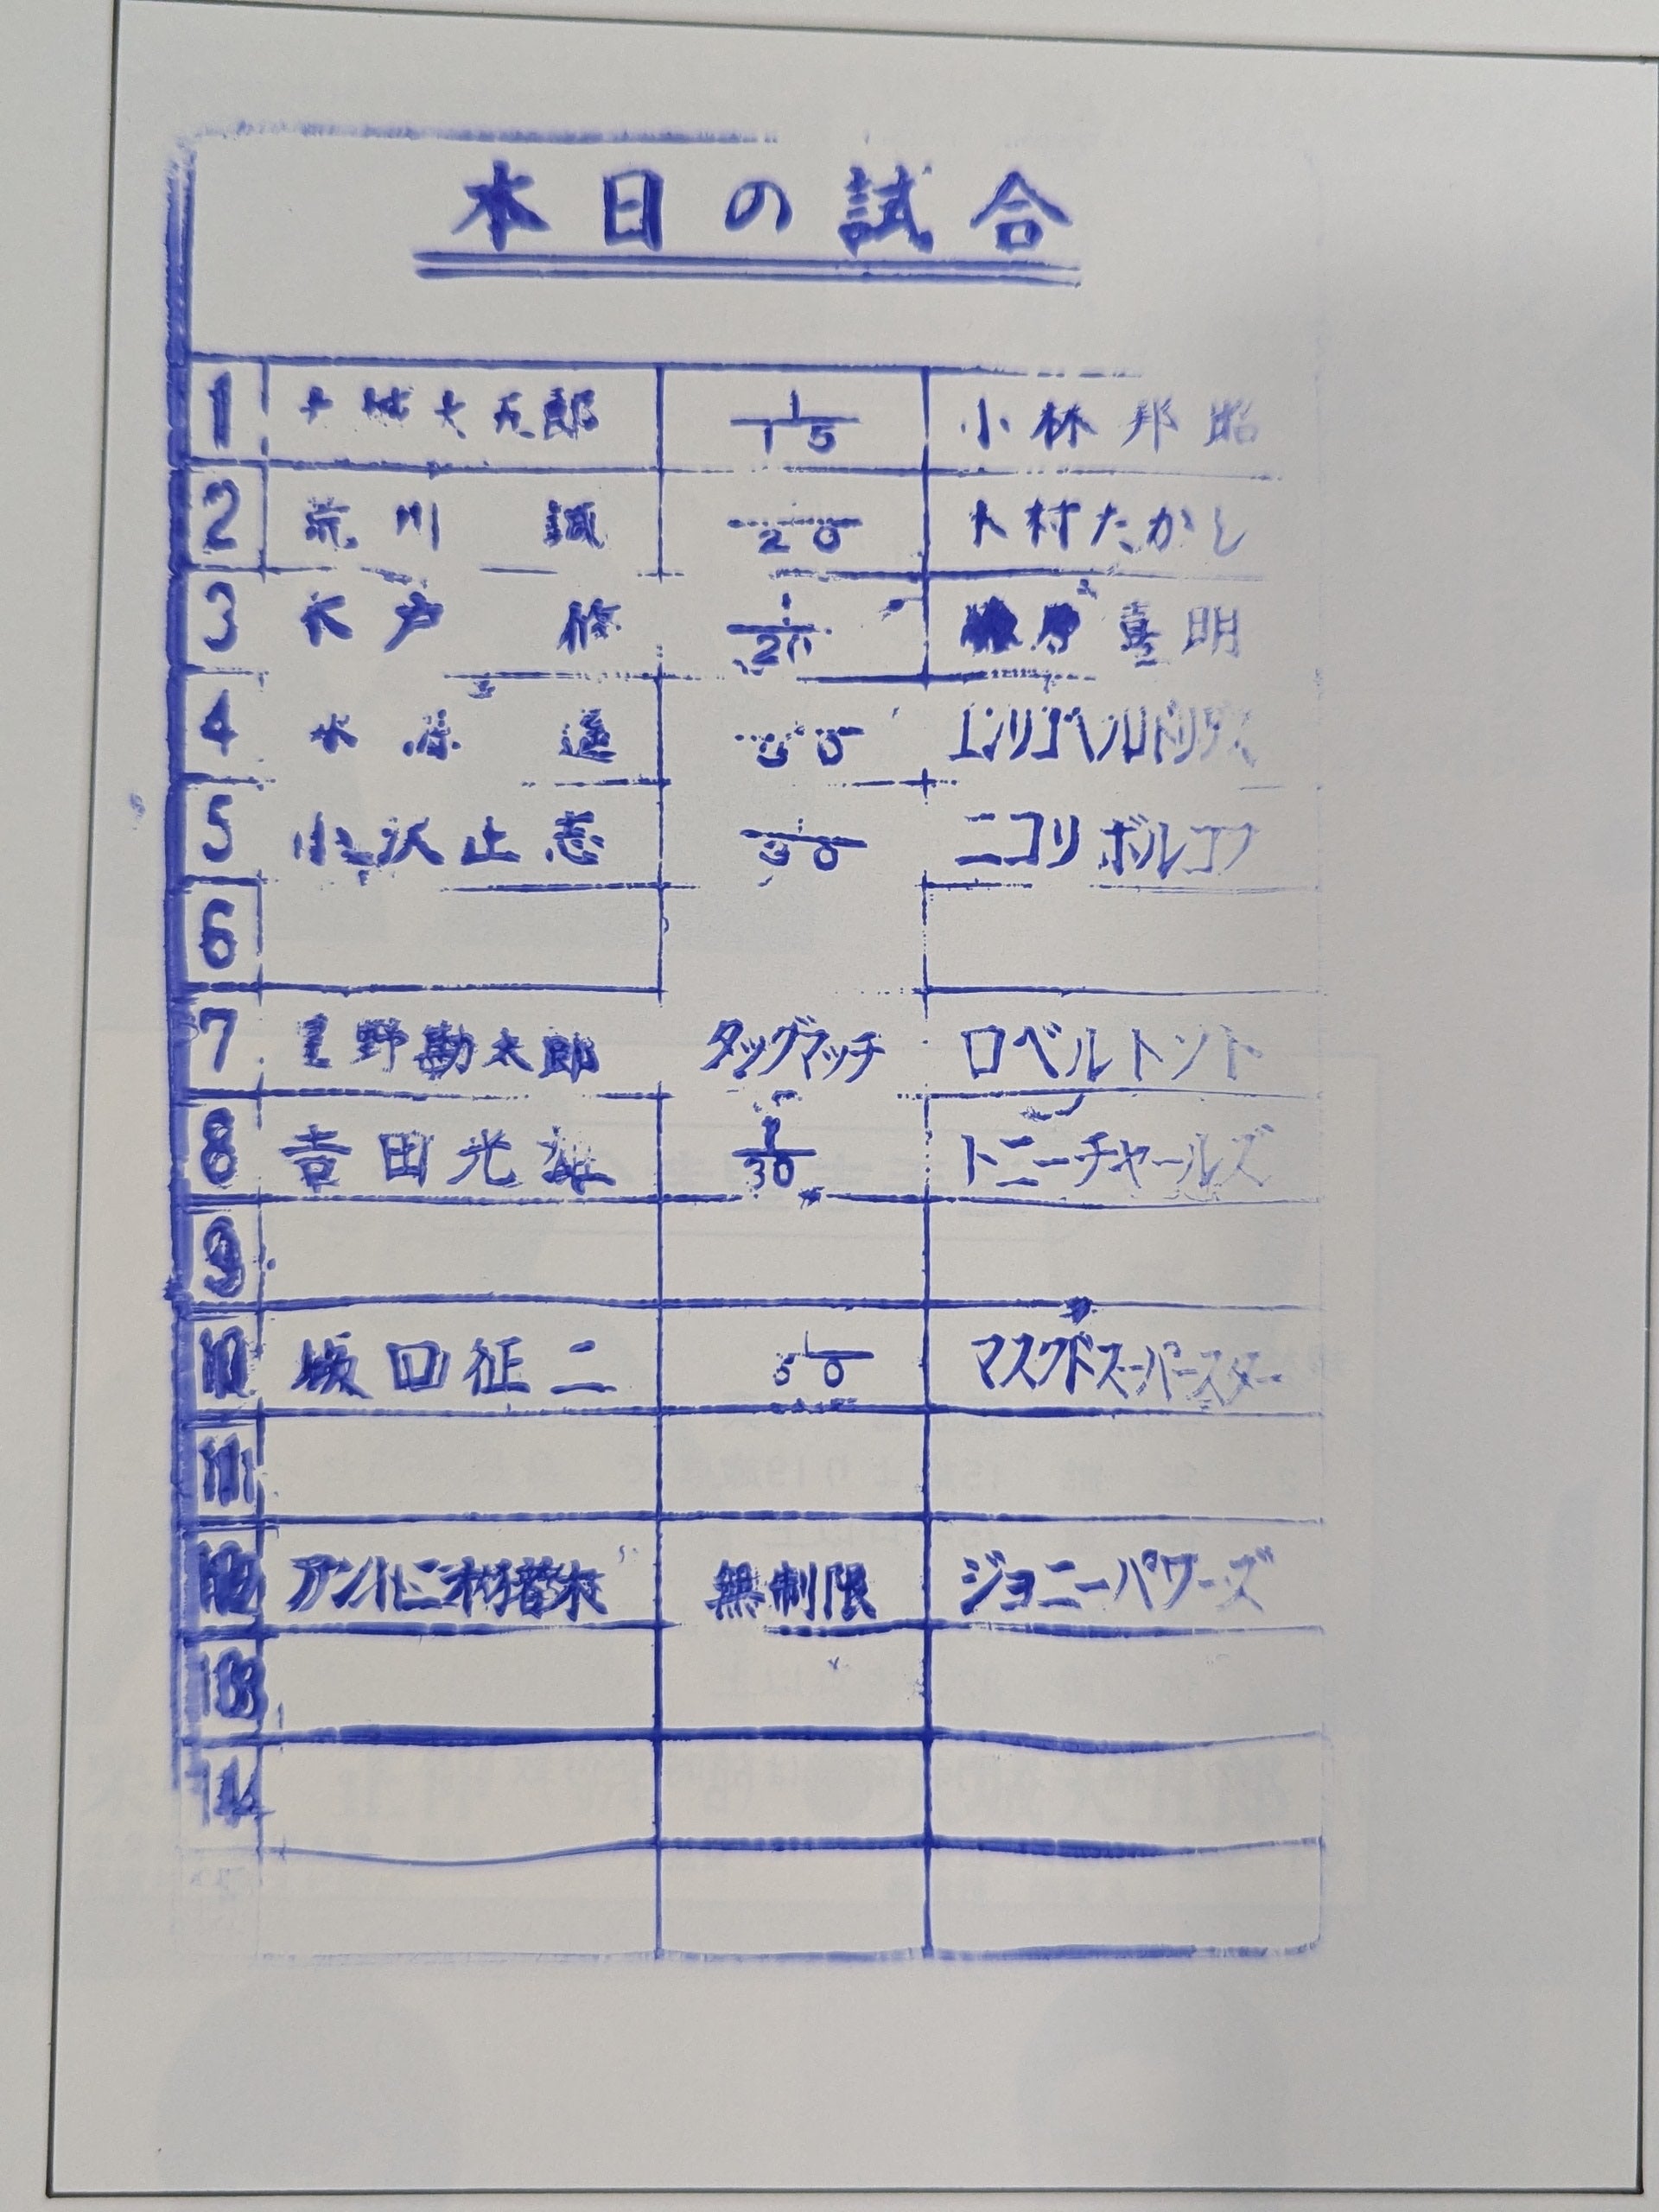 本日の試合
1 大城大五郎 1/15 小林邦昭
2 荒川 誠 1/20 木村たかし
3 木戸 修 1/20 藤原喜明
4 永源 遥 1/30 エンリコベルドリアス
5 小沢正志 1/30 ニコリボルコフ
6
7 星野勘太郎 タッグマッチ ロベルトソト
8 吉田光雄 1/30 トニーチャールズ
9
10 坂口征二 1/50 マスクドスーパースター
11
12 アントニオ猪木 無制限 ジョニーパワーズ
13
14